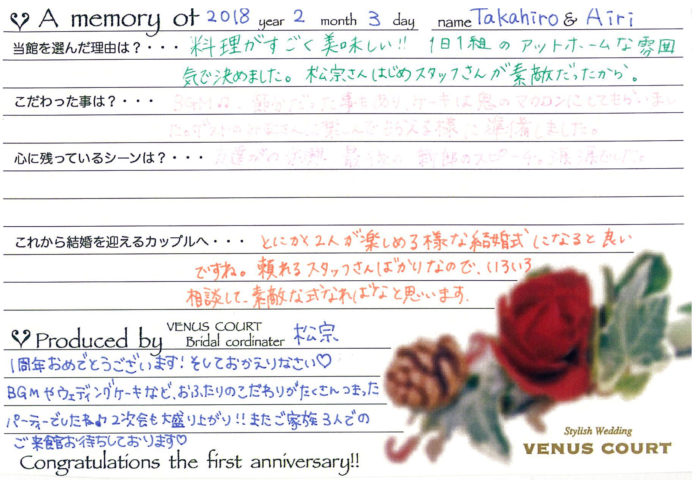 A memory of 2018 year 2 month 3 day name Takahiro & Airi
当館を選んだ理由は？・・・ 料理がすごく美味しい!! 1日1組のアットホームな雰囲
気で決めました。松宗さんはじめスタッフさんが素敵だったから。
こだわった事は？・・・ BGMは、節分だった事もあり、ケーキは鬼のマカロンにしてもらいまし
た。ゲストのみなさんに楽しんでもらえる様に準備しました。
心に残っているシーンは？・・・ 友達からの余興、最後の新郎のスピーチ。
これから結婚を迎えるカップルへ・・・ とにかく2人が楽しめる様な結婚式になると良い
ですね。頼れるスタッフさんばかりなので、いろいろ
相談して、素敵な式なればなと思います。
Produced by VENUS COURT Bridal cordinater 松宗
1周年おめでとうございます！そしておかえりなさい♡
BGMやウェディングケーキなど、おふたりのこだわりがたくさんつまった
パーティーでしたね♪2次会も大盛り上がり!!またご家族3人での
ご来館お待ちしております♡
Congratulations the first anniversary!!
Stylish Wedding
VENUS COURT